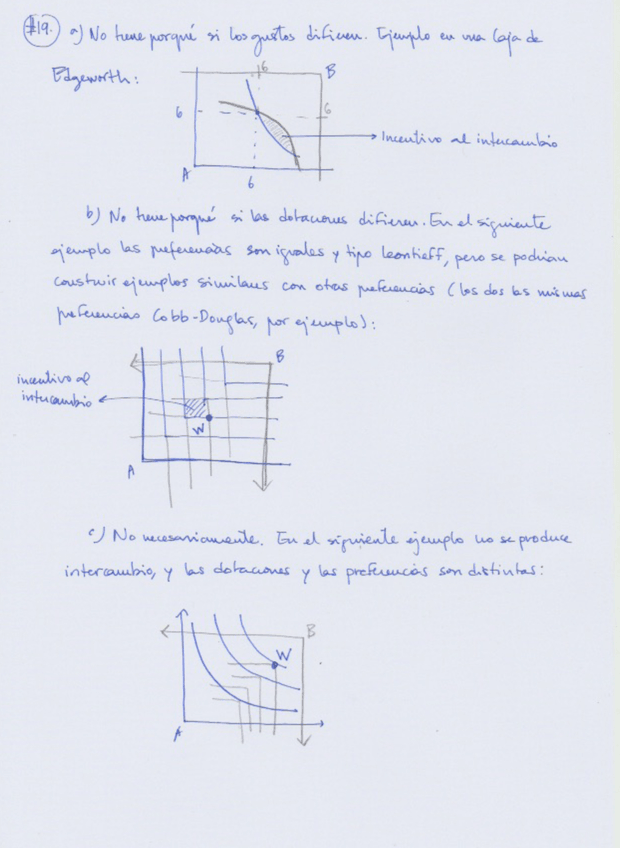 #19. a) No tiene porqué si los gustos difieren. Ejemplo en una Caja de
Edgeworth:
6
B
6
6
Incentivo al intercambio
A
6
b) No tiene porqué si las dotaciones difieren. En el siguiente
ejemplo las preferencias son iguales y tipo leontieff, pero se podrían
construir ejemplos similares con otras preferencias (los dos las mismas
preferencias Cobb-Douglas, por ejemplo):
B
incentivo al
intercambio
W
A
c) No necesariamente. En el siguiente ejemplo no se produce
intercambio, y las dotaciones y las preferencias son distintas:
B
W
A